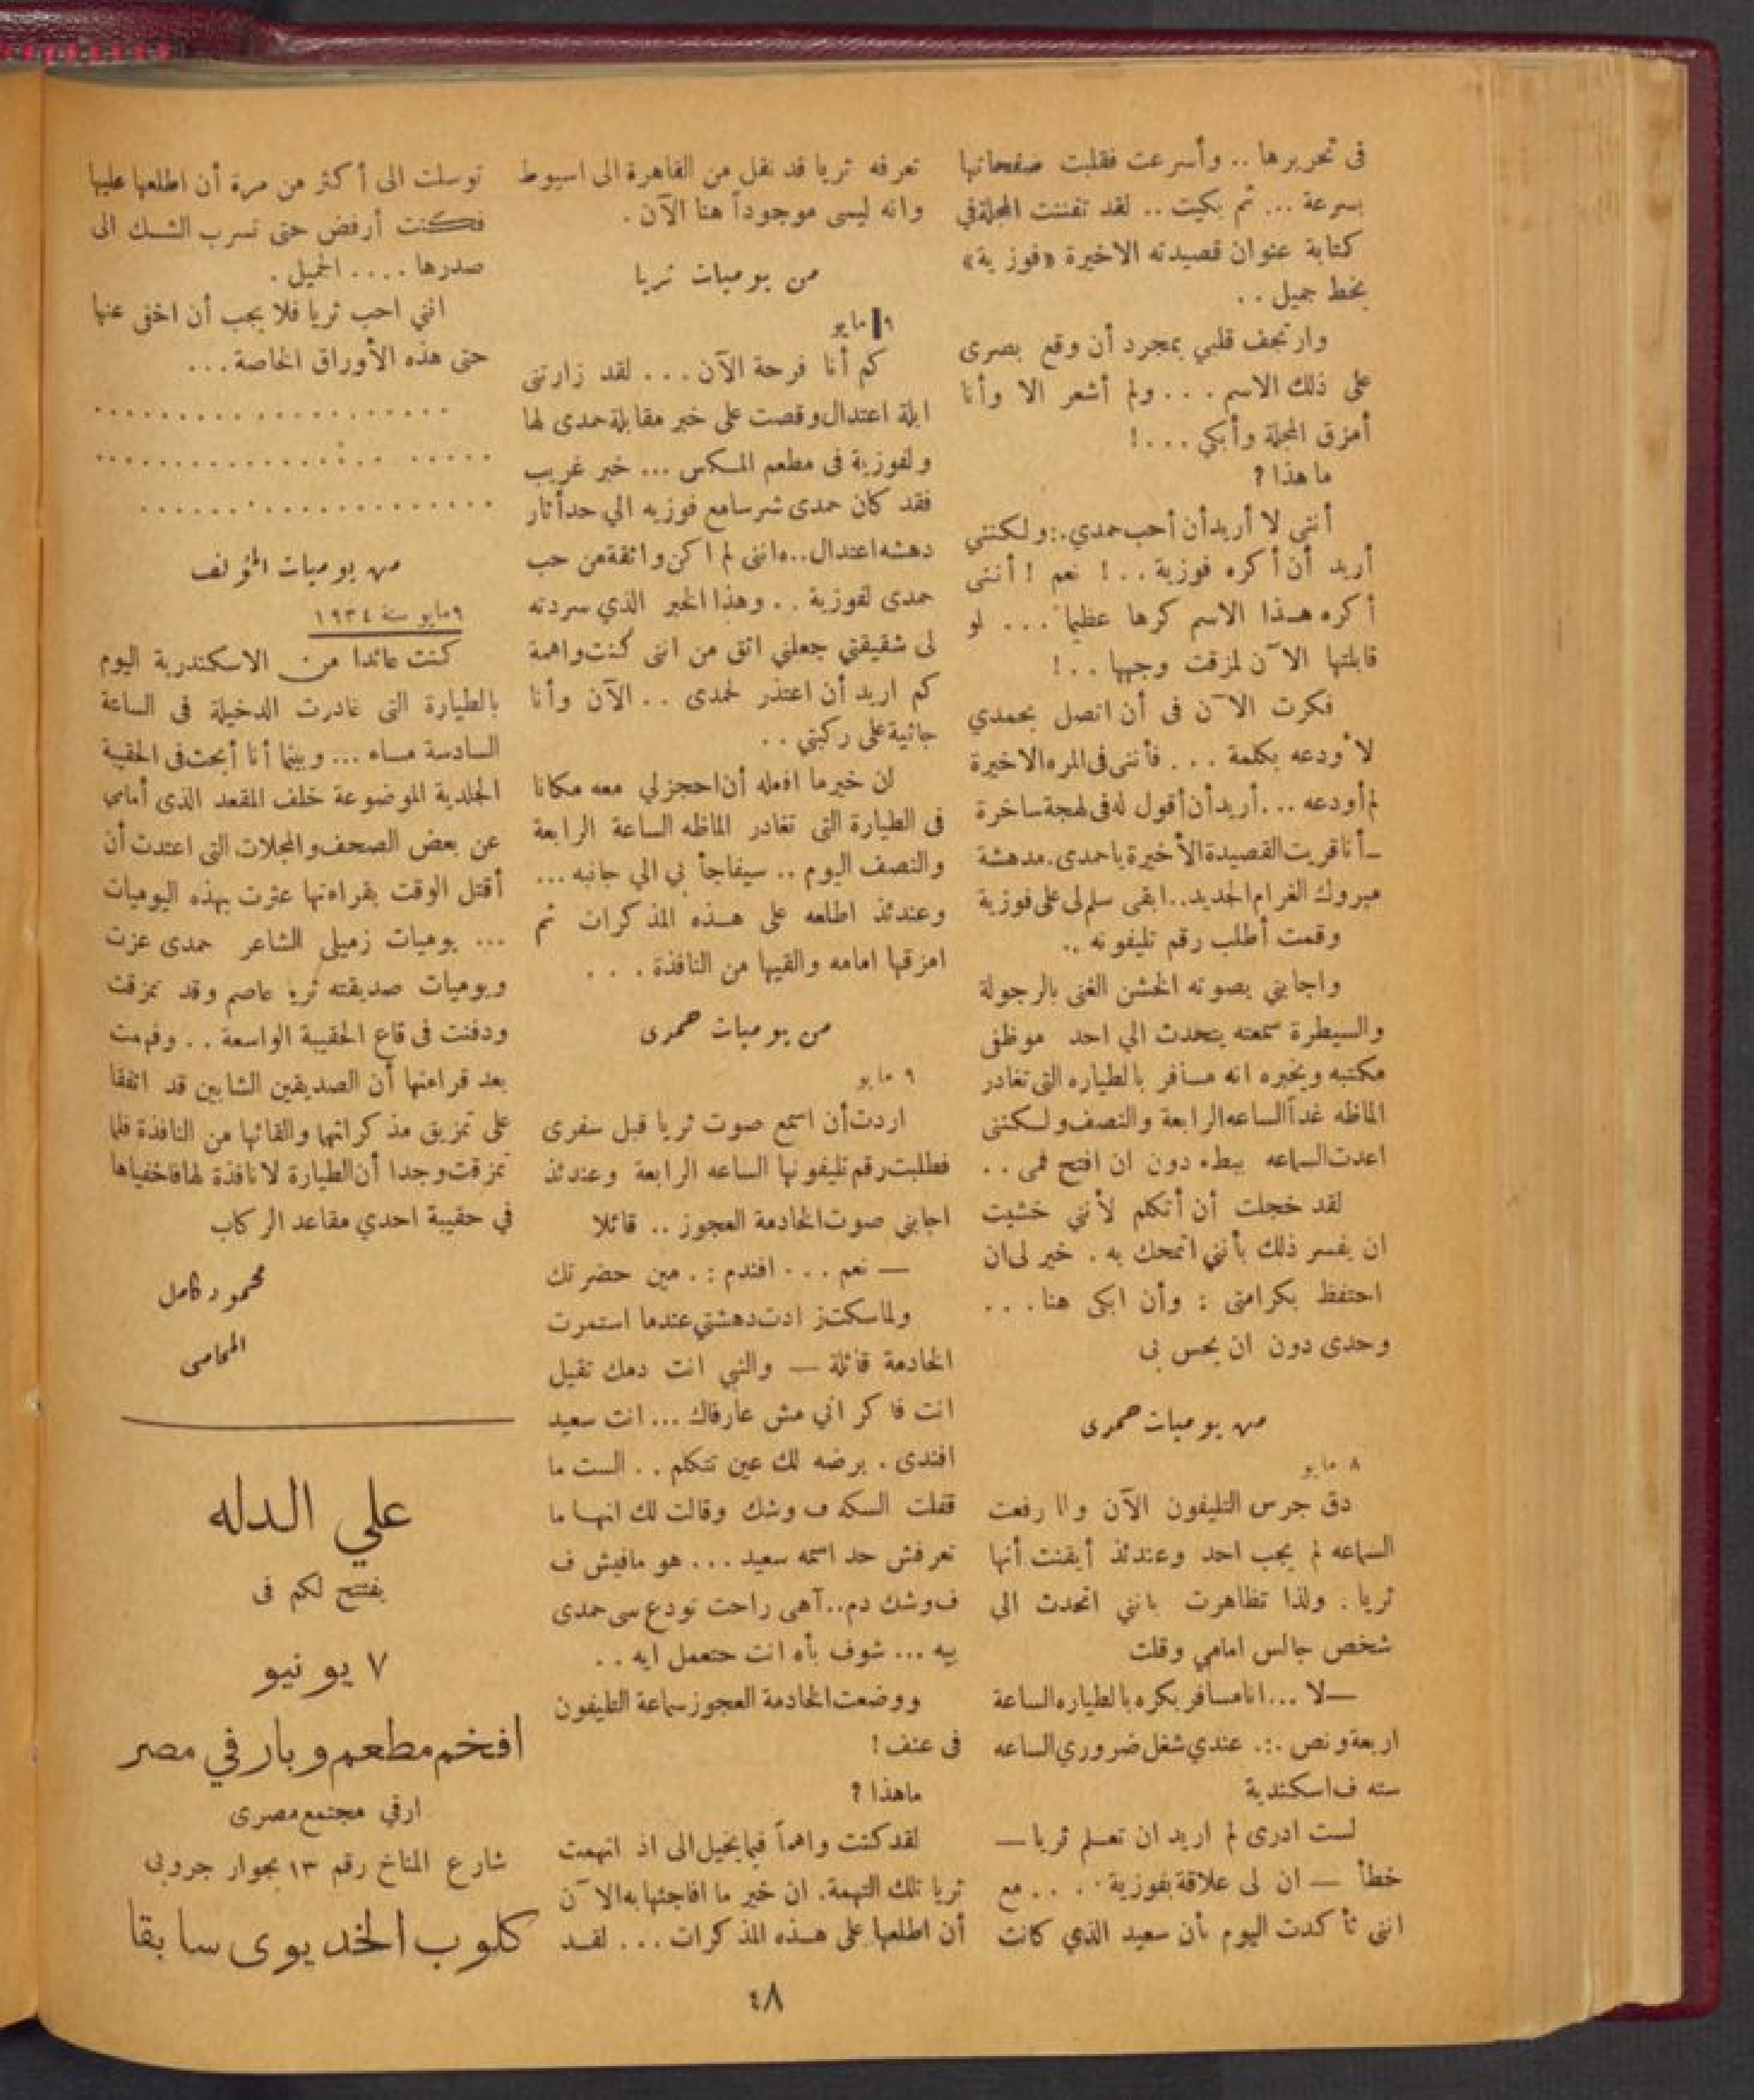 فى تحريرها .. وأسرعت فقلبت صفحاتها
بسرعة ... ثم بكيت .. لقد تفننت المجلة في
كتابة عنوان قصيدته الاخيرة «فوزية»
بخط جميل ..
وارتجف قلبي بمجرد أن وقع بصرى
على ذلك الاسم ... ولم أشعر الا وأنا
أمزق المجلة وأبكي ...!
ما هذا ؟
أننى لا أريد أن أحب حمدي.: ولكننى
أريد أن أكره فوزية ..! نعم ! أننى
أكره هذا الاسم كرها عظيما ... لو
قابلتها الآن لمزقت وجهها ..!
فكرت الآن فى أن اتصل بحمدي
لأودعه بكلمة ... فأننى فى المره الاخيرة
لم أودعه ... أريد أن أقول له فى لهجة ساخرة
ـ أنا قريت القصيدة الأخيرة يا حمدى. مدهشة
مبروك الغرام الجديد.. ابقى سلم لى على فوزية
وقمت أطلب رقم تليفونه ..
واجابني بصوته الخشن الغنى بالرجولة
والسيطرة سمعته يتحدث الي احد موظفى
مكتبه ويخبره انه مسافر بالطياره التى تغادر
الماظه غداً الساعه الرابعة والنصف ولكننى
اعدت السماعه ببطء دون ان افتح فمى ..
لقد خجلت أن أتكلم لأننى خشيت
ان يفسر ذلك بأننى اتمحك به . خير لى ان
احتفظ بكرامتى : وأن ابكى هنا ...
وحدى دون ان يحس بى
من يوميات حمدى
٨ مايو
دق جرس التليفون الآن ولما رفعت
السماعه لم يجب احد وعندئذ أيقنت أنها
ثريا . ولذا تظاهرت بانني اتحدث الى
شخص جالس امامي وقلت
ــ لا ... انا مسافر بكره بالطياره الساعة
اربعة ونص .:. عندي شغل ضروري الساعه
سته ف اسكندية
لست ادرى لم اريد ان تعلم ثريا —
خطأ — ان لى علاقة بفوزية ... مع
اننى تأكدت اليوم بأن سعيد الذي كانت
تعرفه ثريا قد نقل من القاهرة الى اسيوط
وانه ليس موجوداً هنا الآن .
من يوميات ثريا
٩ مايو
كم أنا فرحة الآن ... لقد زارتنى
ابلة اعتدال وقصت على خبر مقابلة حمدى لها
ولفوزية فى مطعم المكس ... خبر غريب
فقد كان حمدى شرسا مع فوزيه الي حد أثار
دهشه اعتدال.. اننى لم اكن واثقة من حب
حمدى لفوزية .. وهذا الخبر الذي سردته
لى شقيقتي جعلني اثق من اننى كنت واهمة
كم اريد أن اعتذر لحمدى .. الآن وأنا
جاثية على ركبتي ..
ان خير ما افعله أن احجز لي معه مكانا
فى الطيارة التى تغادر الماظه الساعة الرابعة
والنصف اليوم .. سيفاجأ بي الي جانبه ...
وعندئذ اطلعه على هذه المذكرات ثم
امزقها امامه والقيها من النافذة ...
من يوميات حمدى
٩ مايو
اردت أن اسمع صوت ثريا قبل سفرى
فطلبت رقم تليفونها الساعه الرابعة وعندئذ
اجابنى صوت الخادمة العجوز .. قائلا
— نعم ... افندم :. مين حضرتك
ولما سكت زادت دهشتي عندما استمرت
الخادمة قائلة — والنبي انت دمك تقيل
انت فاكر اني مش عارفاك ... انت سعيد
افندى . برضه لك عين تتكلم .. الست ما
قفلت السكه ف وشك وقالت لك انها ما
تعرفش حد اسمه سعيد ... هو مافيش ف
ف وشك دم.. آهى راحت تودع سى حمدى
بيه ... شوف بأه انت حتعمل ايه ..
ووضعت الخادمة العجوز سماعة التليفون
فى عنف !
ماهذا ؟
لقد كنت واهماً فيما يخيل الى اذ اتهمت
ثريا تلك التهمة. ان خير ما افاجئها به الآن
أن اطلعها على هذه المذكرات ... لقد
توسلت الى أكثر من مرة أن اطلعها عليها
فكنت أرفض حتى تسرب الشك الى
صدرها .... الجميل .
اننى احب ثريا فلا يجب أن اخفى عنها
حتى هذه الأوراق الخاصة ...
.....................
.....................
.....................
من يوميات المؤلف
٩ مايو سنة ١٩٣٤
كنت عائدا من الاسكندرية اليوم
بالطيارة التى غادرت الدخيلة فى الساعة
السادسة مساء ... وبينما أنا أبحث فى الحقيبة
الجلدية الموضوعة خلف المقعد الذى أمامي
عن بعض الصحف والمجلات التى اعتدت أن
أقتل الوقت بقراءتها عثرت بهذه اليوميات
... يوميات زميلى الشاعر حمدى عزت
ويوميات صديقته ثريا عاصم وقد تمزقت
ودفنت فى قاع الحقيبة الواسعة .. وفهمت
بعد قراءتها أن الصديقين الشابين قد اتفقا
على تمزيق مذكراتهما والقائها من النافذة فلما
تمزقت وجدا أن الطيارة لا نافذة لها فاخفياها
في حقيبة احدي مقاعد الركاب
محمود كامل
المحامى
علي الدله
يفتتح لكم فى
٧ يونيو
افخم مطعم وبار في مصر
ارقي مجتمع مصرى
شارع المناخ رقم ١٣ بجوار جروبى
كلوب الخديوى سابقا
٤٨